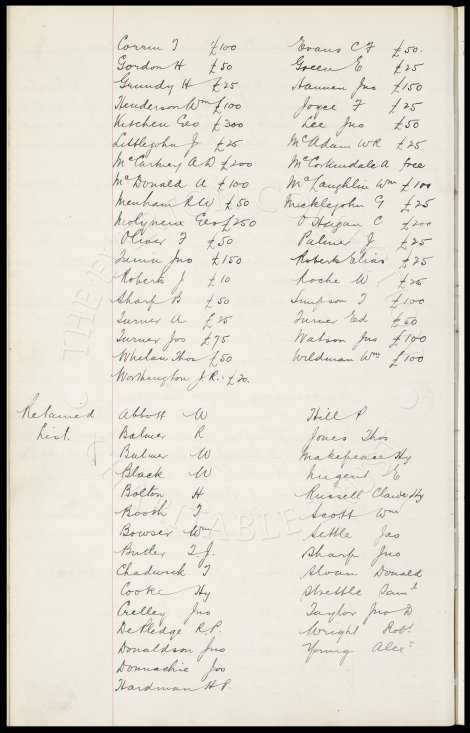 Corrin T £100 Evans C F £50.
Gordon H £50 Green E £25
Grundy H £25 Hannen Jno £150
Henderson Wm £100 Joyce F £25
Kitchen Geo £300 Lee Jno £50
Littlejohn J £25 McAdam W R £25
McCartney A D £200 McCorkindale A free
McDonald A £100 McLaughlin Wm £100
Menham R W £50 Micklejohn G £25
Molyneux Geo £250 O'Hagan C £200
Oliver F £50 Palmer J £25
Jno £150 Roberts Elias £25
Roberts J £10 Roche W £25
Sharp B £50 Simpson T £100
Turner A £25 Turner Ed £50
Turner Jos £75 Watson Jno £100
Whelan Thos £50 Wildman Wm £100
Worthington J. R. £20.
Retained Abbott W Hill P
List. Balmer R Jones Thos
Balmer W Makepeace Hy
Black W Nugent E
Bolton H Russell Claude Hy
Booth T Scott Wm
Bowser Wm Settle Jas
Butler T. J. Sharp Jno
Chadwick T Sloan Donald
Cooke Hy Strettle Saml
Crelley Jno Taylor Jno D
DePledge R. P. Wright Robt
Donaldson Jno Young Alexr
Donnachie Jos
Hardman H P.